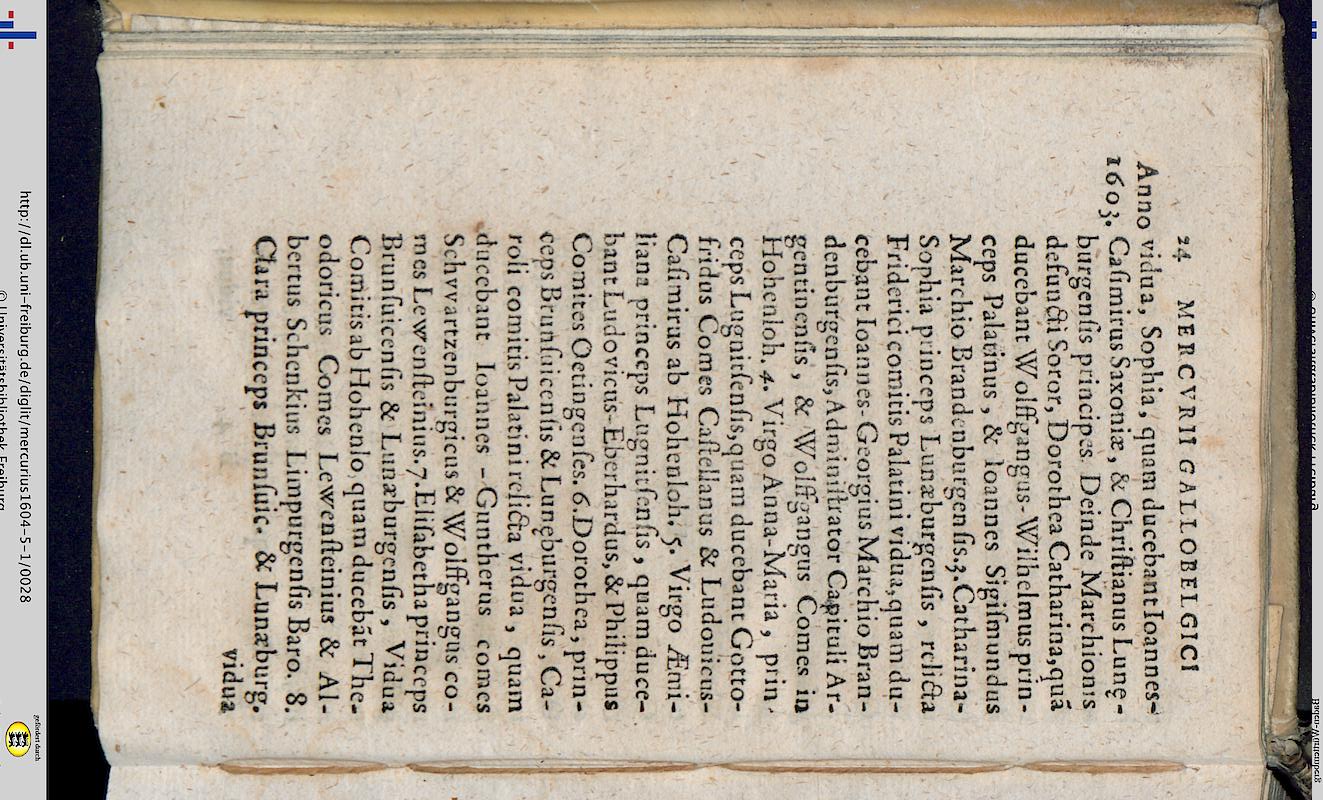 24 MERCVRII GALLOBELGICI
Anno vidua, Sophia, quam ducebant Ioannes-
1603. Caſimirus Saxoniæ, & Chriſtianus Lunę-
burgenſis principes. Deinde Marchionis
defuncti Soror, Dorothea Catharina, quā
ducebant Wolffgangus-Wilhelmus prin-
ceps Palatinus, & Ioannes Sigiſmundus
Marchio Brandenburgenſis. 3. Catharina-
Sophia princeps Lunæburgenſis, relicta
Friderici comitis Palatini vidua, quam du-
cebant Ioannes-Georgius Marchio Bran-
denburgenſis, Adminiſtrator Capituli Ar-
gentinenſis, & Wolffgangus Comes in
Hohenloh. 4. Virgo Anna-Maria, prin-
ceps Lugnitſenſis, quam ducebant Gotto-
fridus Comes Caſtellanus & Ludouicus-
Caſimirus ab Hohenloh. 5. Virgo Æmi-
liana princeps Lugnitſenſis, quam duce-
bant Ludovicus-Eberhardus, & Philippus
Comites Oetingenſes. 6. Dorothea, prin-
ceps Brunſuicenſis & Lunęburgenſis, Ca-
roli comitis Palatini relicta vidua, quam
ducebant Ioannes-Guntherus comes
Schvvartzenburgicus & Wolffgangus co-
mes Lewenſteinius. 7. Eliſabetha princeps
Brunſuicenſis & Lunæburgenſis, Vidua
Comitis ab Hohenlo, quam ducebāt The-
odoricus Comes Lewenſteinius & Al-
bertus Schenkius Limpurgenſis Baro. 8.
Clara princeps Brunſuic. & Lunæburg.
vidua
http://dl.ub.uni-freiburg.de/diglit/mercurius1604-5-1/0028
© Universitätsbibliothek Freiburg
gefördert durch